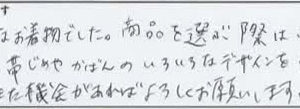 す
なお着物でした。商品を選ぶ際は
帯じめやかばんのいろいろなデザインを
た機会があればよろしくお願いします